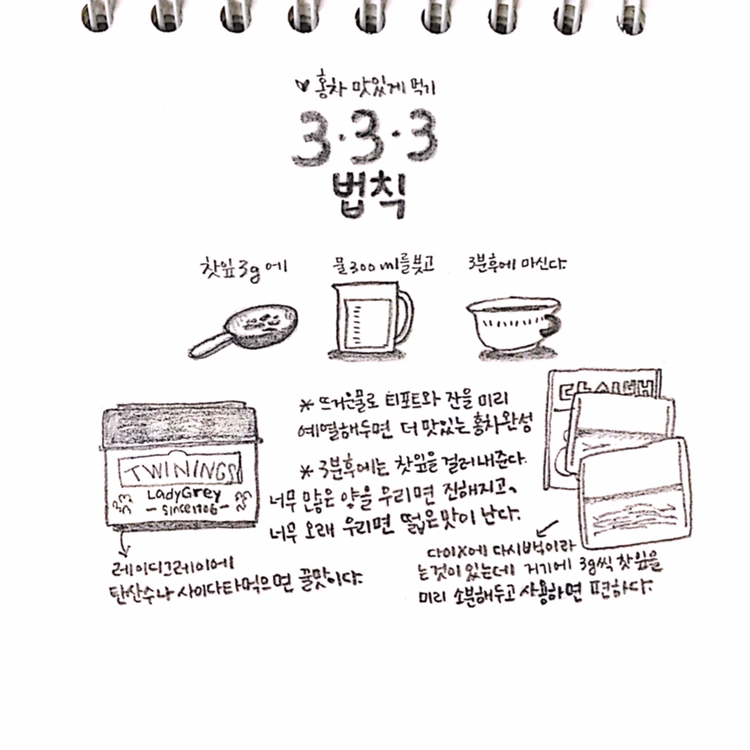 ♥ 홍차 맛있게 먹기
3·3·3
법칙
찻잎 3g에
물 300ml를 붓고
3분후에 마신다.
* 뜨거운물로 티포트와 잔을 미리
예열해두면 더 맛있는 홍차완성
* 3분후에는 찻잎을 걸러내준다.
너무 많은 양을 우리면 진해지고,
너무 오래 우리면 떫은맛이 난다.
TWININGS
Lady Grey
- Since 1706 -
레이디그레이에
탄산수나 사이다타먹으면 꿀맛이다.
다시백
다이X에 다시백이라
는것이 있는데 거기에 3g씩 찻잎을
미리 소분해두고 사용하면 편하다.